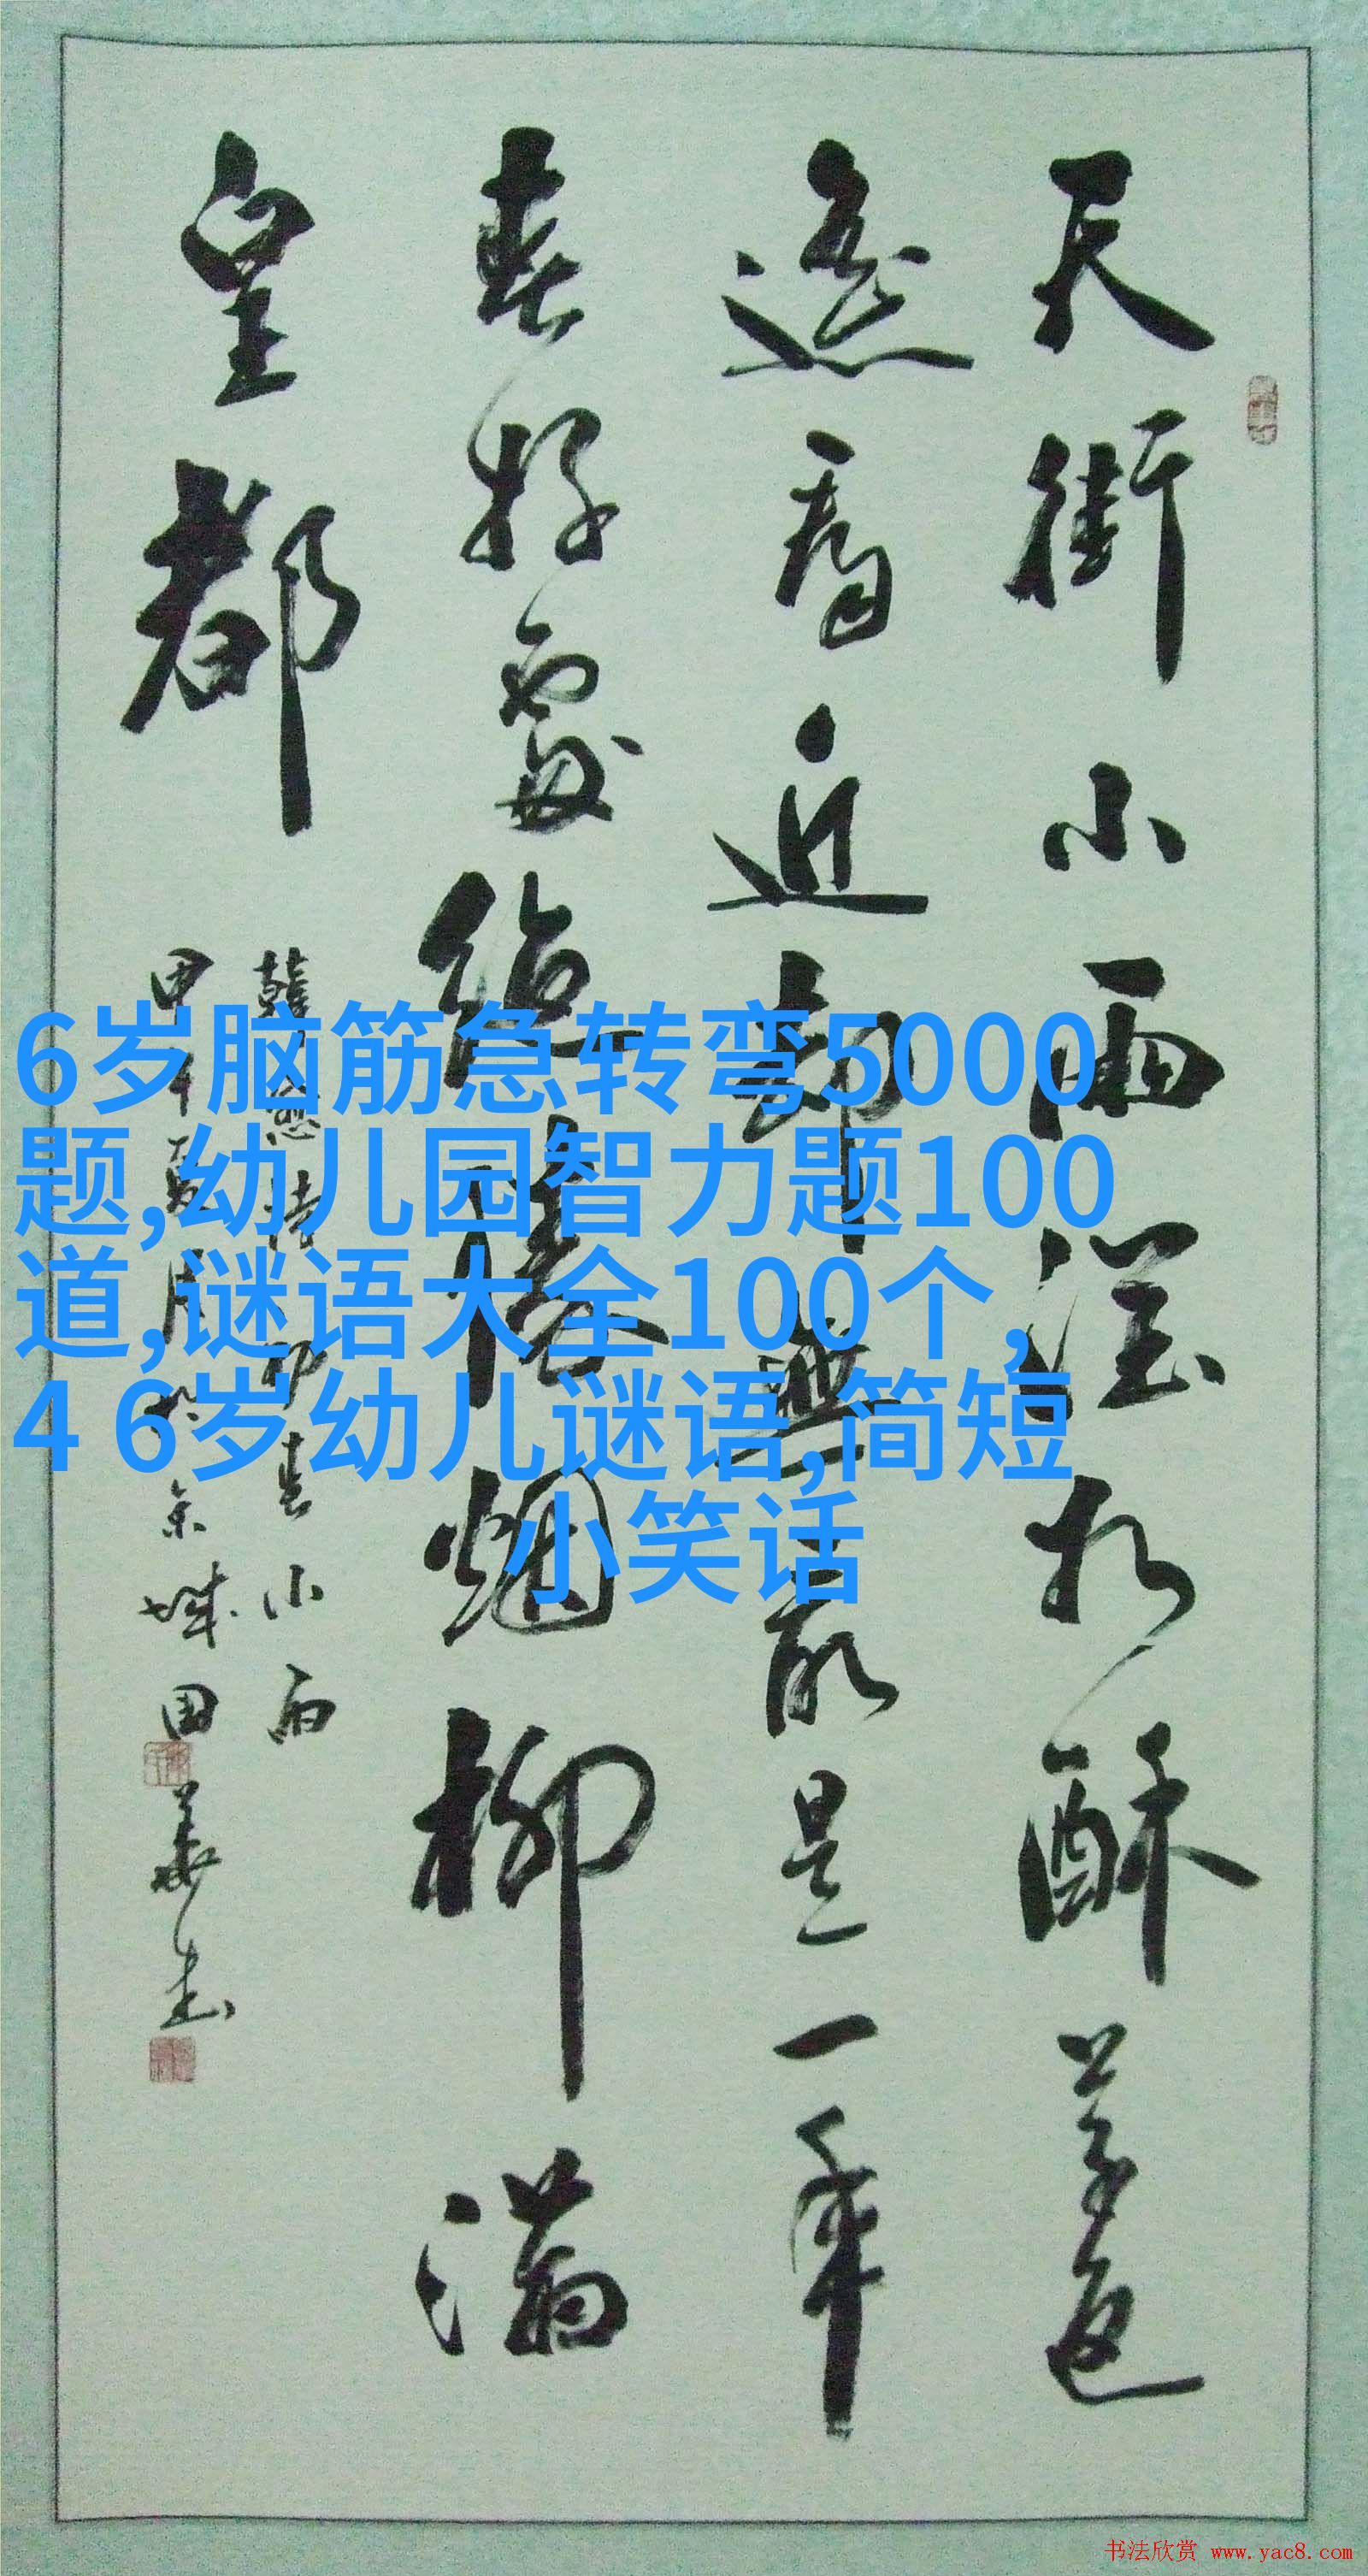 天街小雨潤如酥草色
遥看近却無最是一年
春好處絶勝烟柳滿
皇都
韓愈詩初春小雨
甲午夏月於京城国華书
6岁脑筋急转弯5000
题,幼儿园智力题100
道,谜语大全100个,
4 6岁幼儿谜语,简短
小笑话
书法欣赏 www.yac8.com